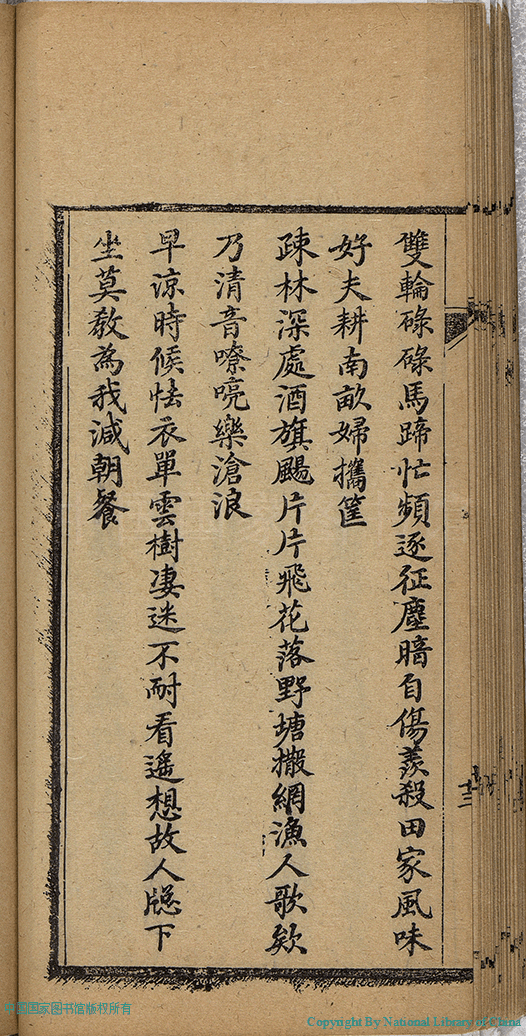 雙輪碌碌馬蹄忙頻逐征塵暗自傷羨殺田家風味
好夫耕南畝婦攜筐
疎林深處酒旗颺片片飛花落野塘撒網漁人歌欸
乃清音嘹喨樂滄浪
早涼時候怯衣單雲樹淒迷不耐看遥想故人牕下
坐莫教為我減朝餐
十三
中国国家图书馆版权所有
Copyright By National Library of China